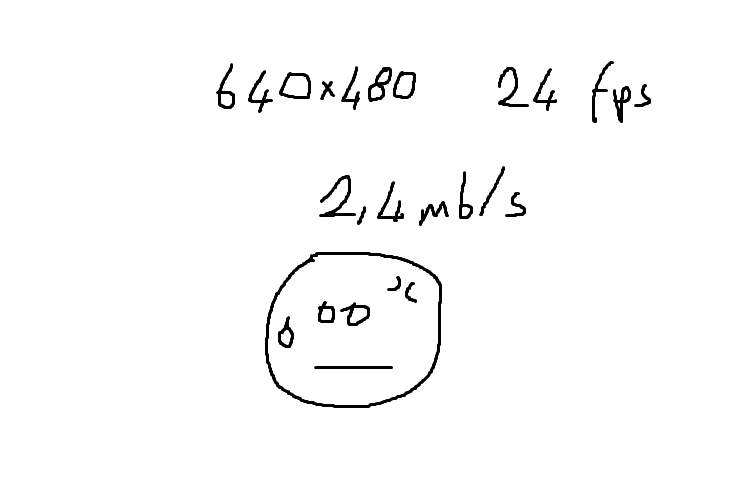 640x480 24 fps
2,4 mb/s